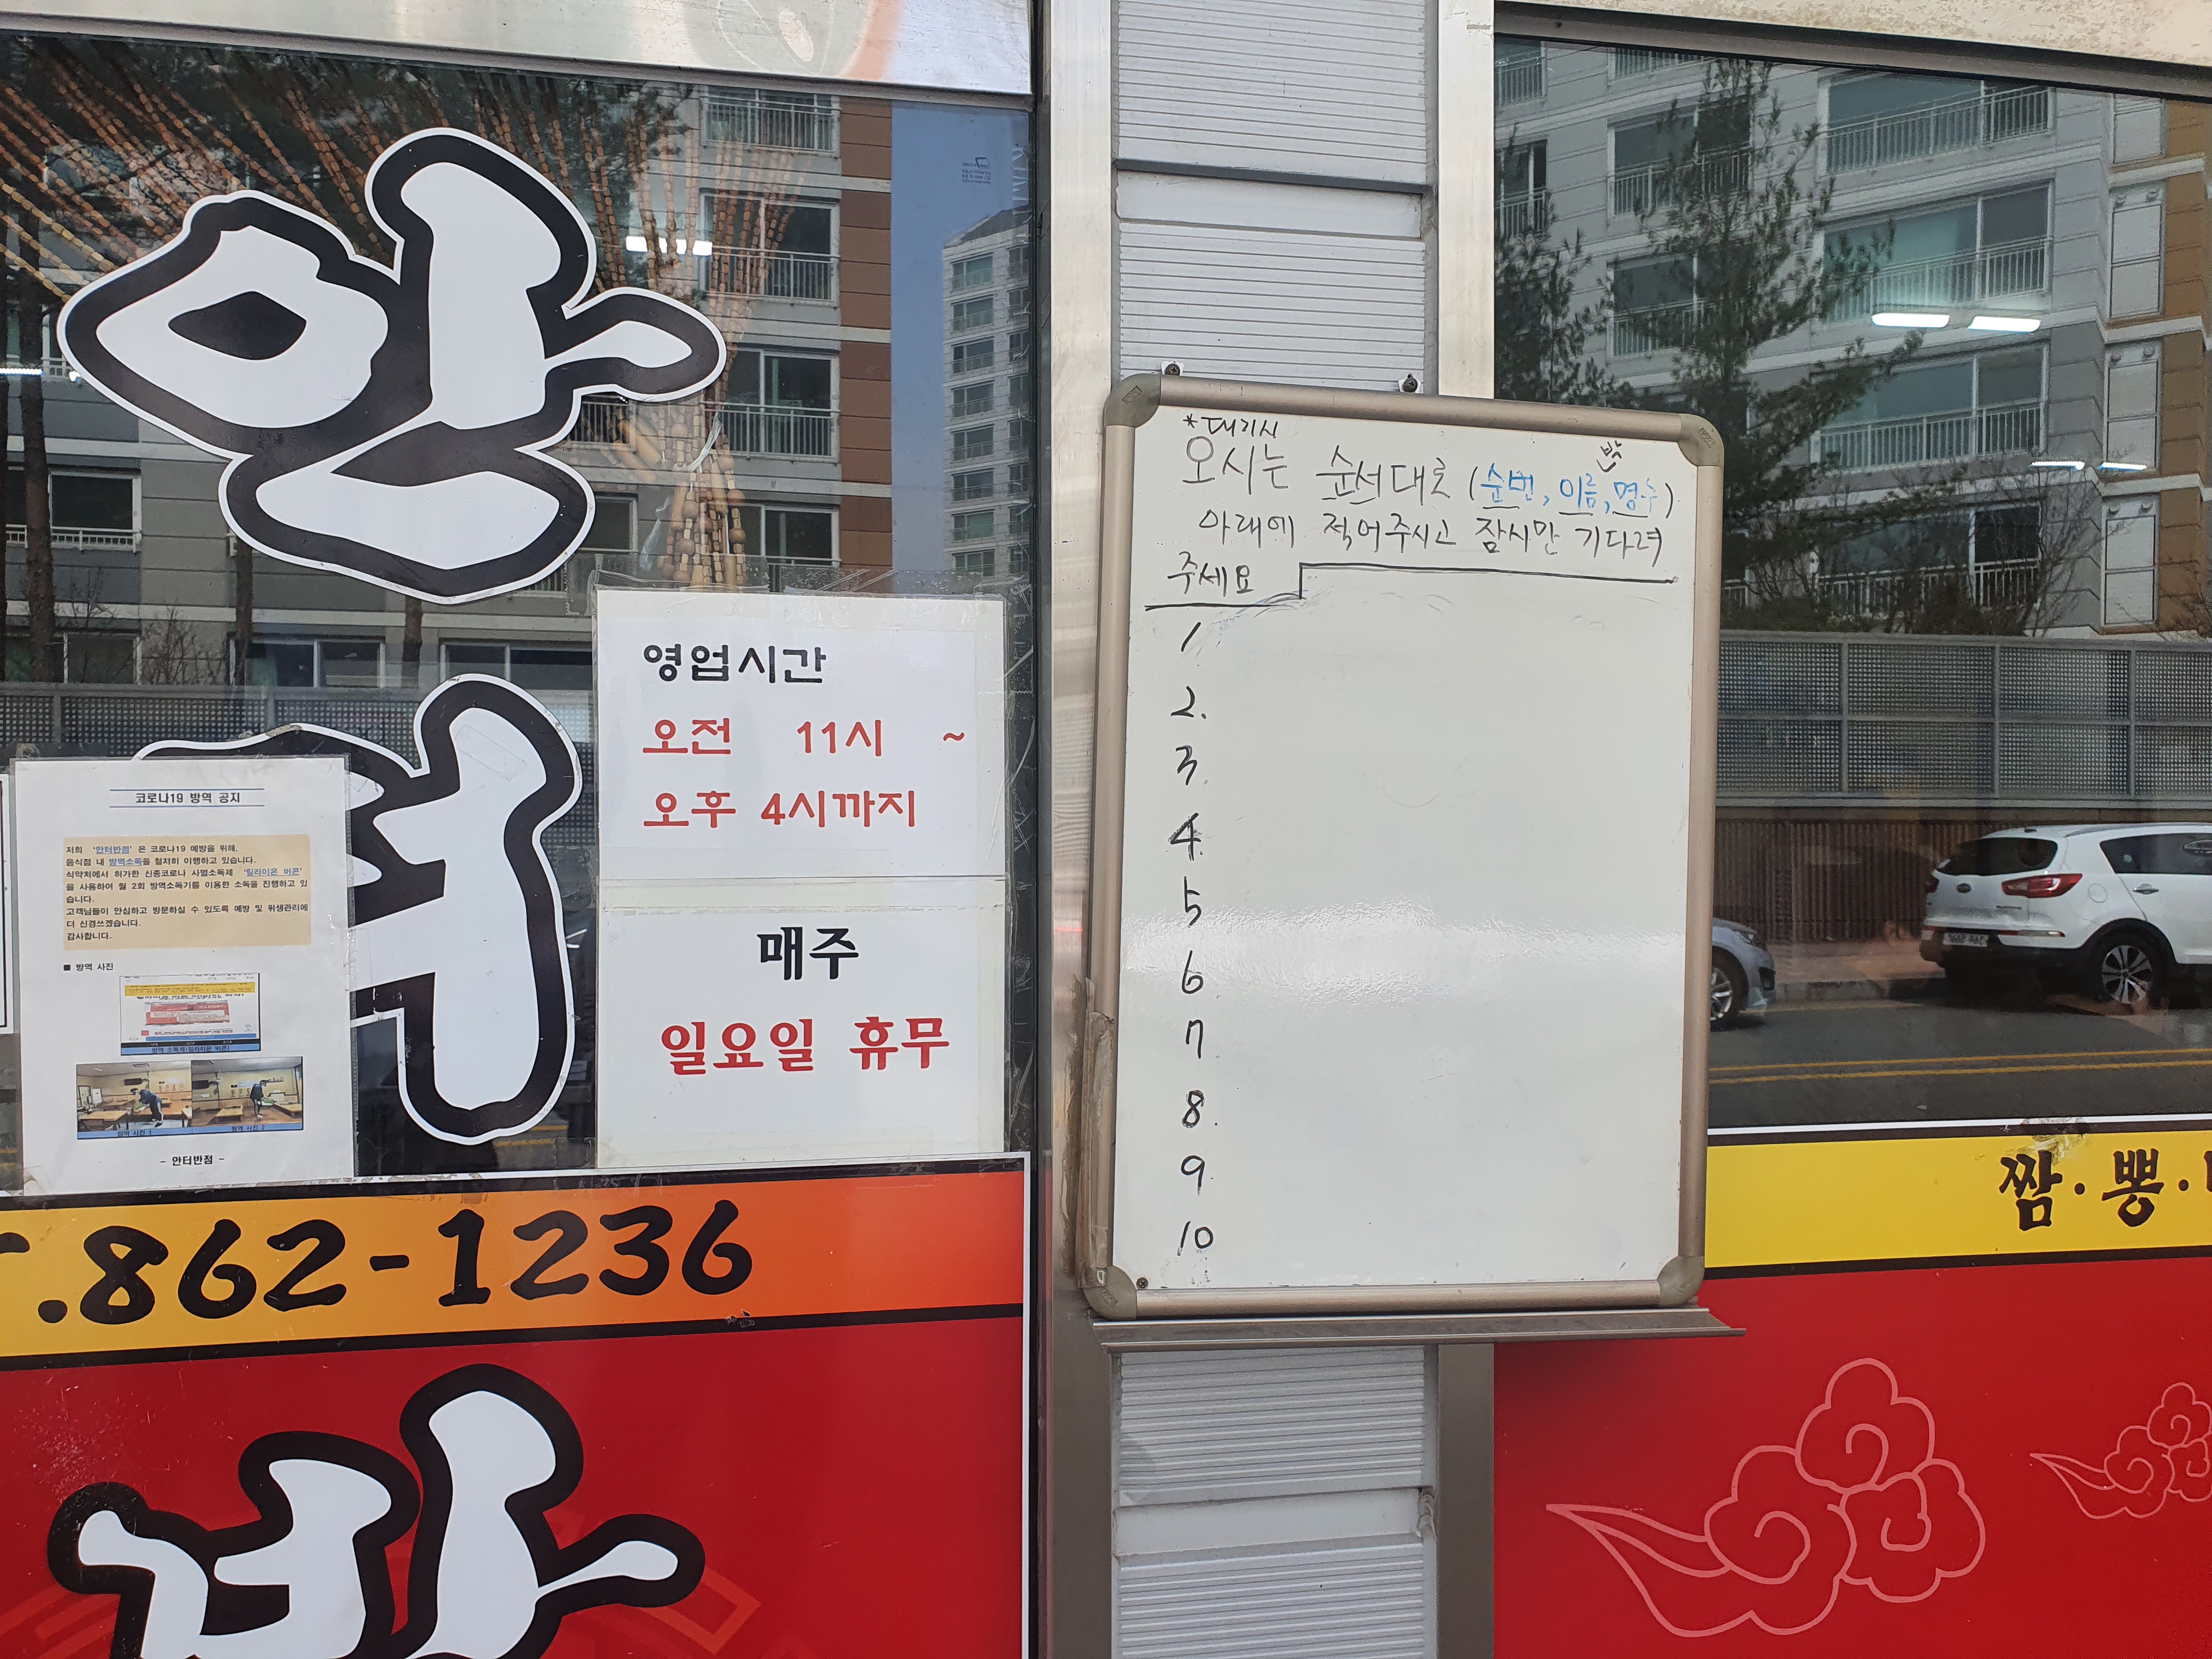 안
터
영업시간
오전 11시 ~
오후 4시까지
매주
일요일 휴무
코로나19 방역 공지
저희 '안터반점' 은 코로나19 예방을 위해,
음식점 내 방역소독을 철저히 이행하고 있습니다.
식약처에서 허가한 신종코로나 사멸소독제 '릴라이온 버콘'
을 사용하여 월 2회 방역소독기를 이용한 소독을 진행하고 있
습니다.
고객님들이 안심하고 방문하실 수 있도록 예방 및 위생관리에
더 신경쓰겠습니다.
감사합니다.
■ 방역 사진
방역 사진 1
방역 사진 2
- 안터반점 -
.862-1236
*대기시
오시는 순서대로 (순번, 이름, 명수)
아래에 적어주시고 잠시만 기다려
주세요
1
2.
3.
4.
5
6
7
8.
9.
10
짬·뽕·